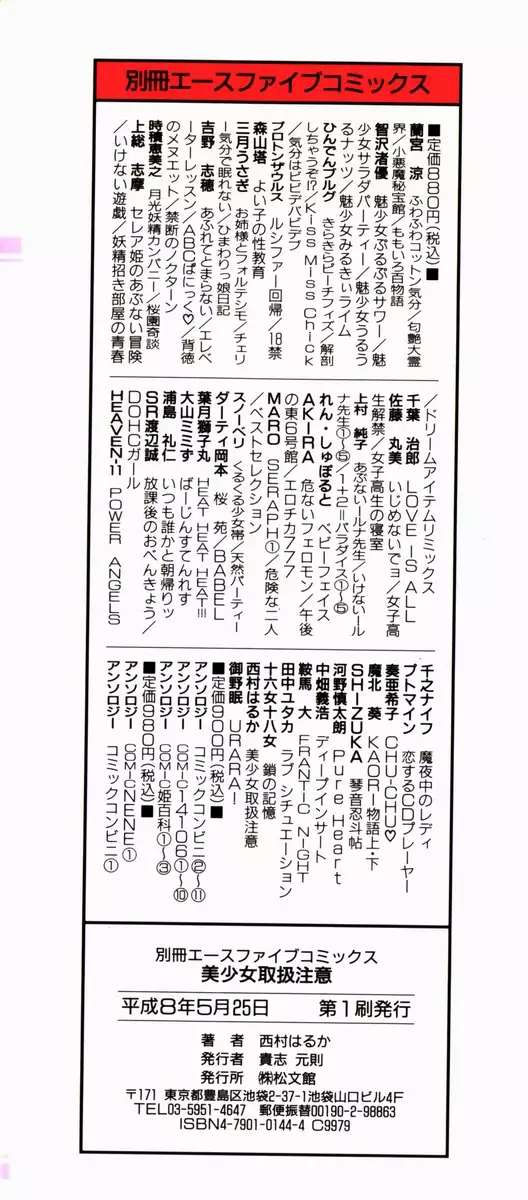 別冊エースファイブコミックス
■定価880円(税込)■
蘭宮 涼 ふわふわコットン気分/匂艶大霊
界/小悪魔秘宝館/ももいろ百物語
智沢渚優 魅少女ぷるぷるサワー/魅
少女サラダパーティー/魅少女うるう
るナッツ/魅少女みるきぃライム
ひんでんブルグ きらきらピーチフィズ/解剖
しちゃうぞ!?/Kiss Miss Chick
/気分はビビデバビデブ
プロトンザウルス ルシファー回帰/18禁
森山塔 よい子の性教育
三月うさぎ お姉様とフォルテシモ/チェリ
ー気分で眠れない/ひまわりっ娘日記
吉野 志穂 あふれてとまらない/エレベ
ーターレッスン/ABCぱにっく♡/背徳
のメヌエット/禁断のノクターン
時積恵美之 月光妖精カンパニー/桜園奇談
上総 志摩 セレア姫のあぶない冒険
/いけない遊戯/妖精招き部屋の青春
/ドリームアイテムリミックス
千葉 治郎 LOVE IS ALL
佐藤 丸美 いじめないでョ/女子高
生解禁/女子高生の寝室
上村 純子 あぶないルナ先生/いけないル
ナ先生①~⑥/1+2=パラダイス①~⑤
れん・しゅぽると ベビーフェイス
AKIRA 危ないフェロモン/午後
の東6号館/エロチカ777
MARO SERAPH①/危険な二人
/ベストセレクション
スノーベリ くるくる少女帯/天然パーティー
ダーティ岡本 桜 苑/BABEL
葉月獅子丸 HEAT HEAT HEAT!!!
大山ミミず ばーじんすてんれす
浦島 礼仁 いつも誰かと朝帰りッ
SR渡辺誠 放課後のおべんきょう/
DOHCガール
HEAVEN-11 POWER ANGELS
千之ナイフ 魔夜中のレディ
プトマイン 恋するCDプレーヤー
奏亜希子 CHU-CHU♡
魔北 葵 KAORI物語上・下
SHIZUKA 琴音忍斗帖
河野慎太朗 Pure Heart
中畑義浩 ディープインサート
鞍馬 大 FRANTIC NIGHT
田中ユタカ ラブ シチュエーション
十六女十八女 鎖の記憶
西村はるか 美少女取扱注意
御野眠 URARA!
■定価900円(税込)■
アンソロジー コミックコンビニ②~⑪
アンソロジー COMIC14106①~⑩
アンソロジー COMIC姫百科①~③
■定価980円(税込)■
アンソロジー COMICNENE①
アンソロジー コミックコンビニ①
別冊エースファイブコミックス
美少女取扱注意
平成8年5月25日 第1刷発行
著 者 西村はるか
発行者 貴志 元則
発行所 ㈱松文館
〒171 東京都豊島区池袋2-37-1池袋山口ビル4F
TEL03-5951-4647 郵便振替00190-2-98863
ISBN4-7901-0144-4 C9979